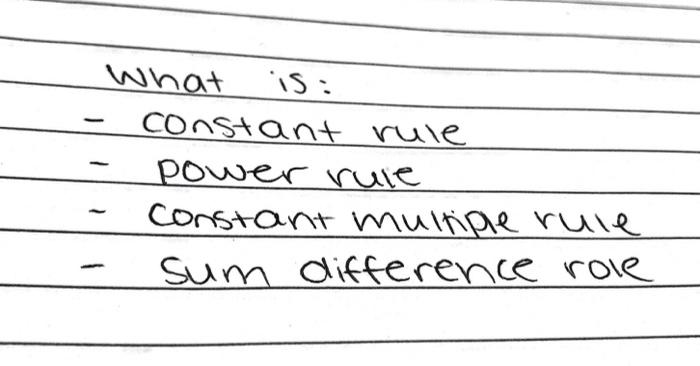 What is:
- constant rule
- power rule
- constant multiple rule
- sum difference role